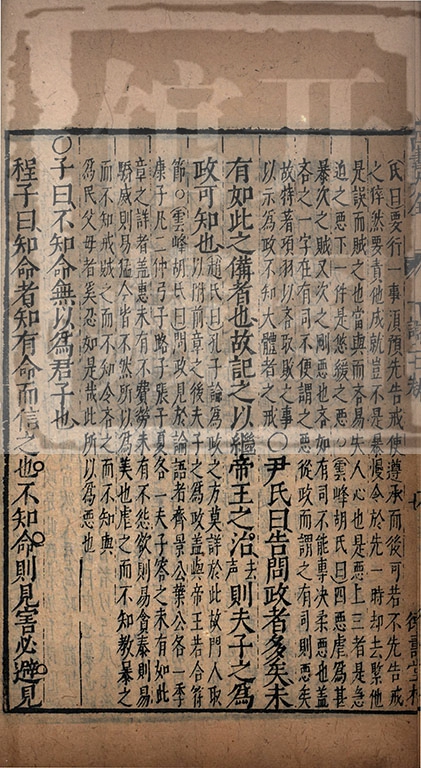 氏曰要行一事須預先告戒使遵承而後可若不先告戒
之倅然要責他成就豈不是暴慢令於先一時却去緊他
是誤而賊之也當與而吝易失人心也是惡上三者是急
迫之惡下一件是悠緩之惡○雲峰胡氏曰四惡虐爲甚
暴次之賊又次之剛惡也吝如有司不能專決柔惡也蓋
吝之一字在有司不便謂之惡從政而謂之有司則惡矣
故特著項羽以吝取敗之事
以示爲政不知大體者之戒
○尹氏曰告問政者多矣未
有如此之備者也故記之以繼帝王之治去聲則夫子之爲
政可知也
趙氏曰孔子論爲政之方莫詳於此故門人取
以附前章之後夫子之爲政蓋與帝王若合符
節○雲峰胡氏曰問政見於論語者齊景公葉公各一季
康子凡二仲弓子路子張子夏各一夫子答之未有如此
章之詳者蓋惠未有不費勞未有不怨欲則易貪泰則易
驕威則易猛今皆不然所以爲美也虐之而不知教暴之
而不知戒賊之而不知令吝之而不知與
爲民父母者奚忍如是哉此所以爲惡也
○子曰不知命無以爲君子也
程子曰知命者知有命而信之也不知命則見害必避見